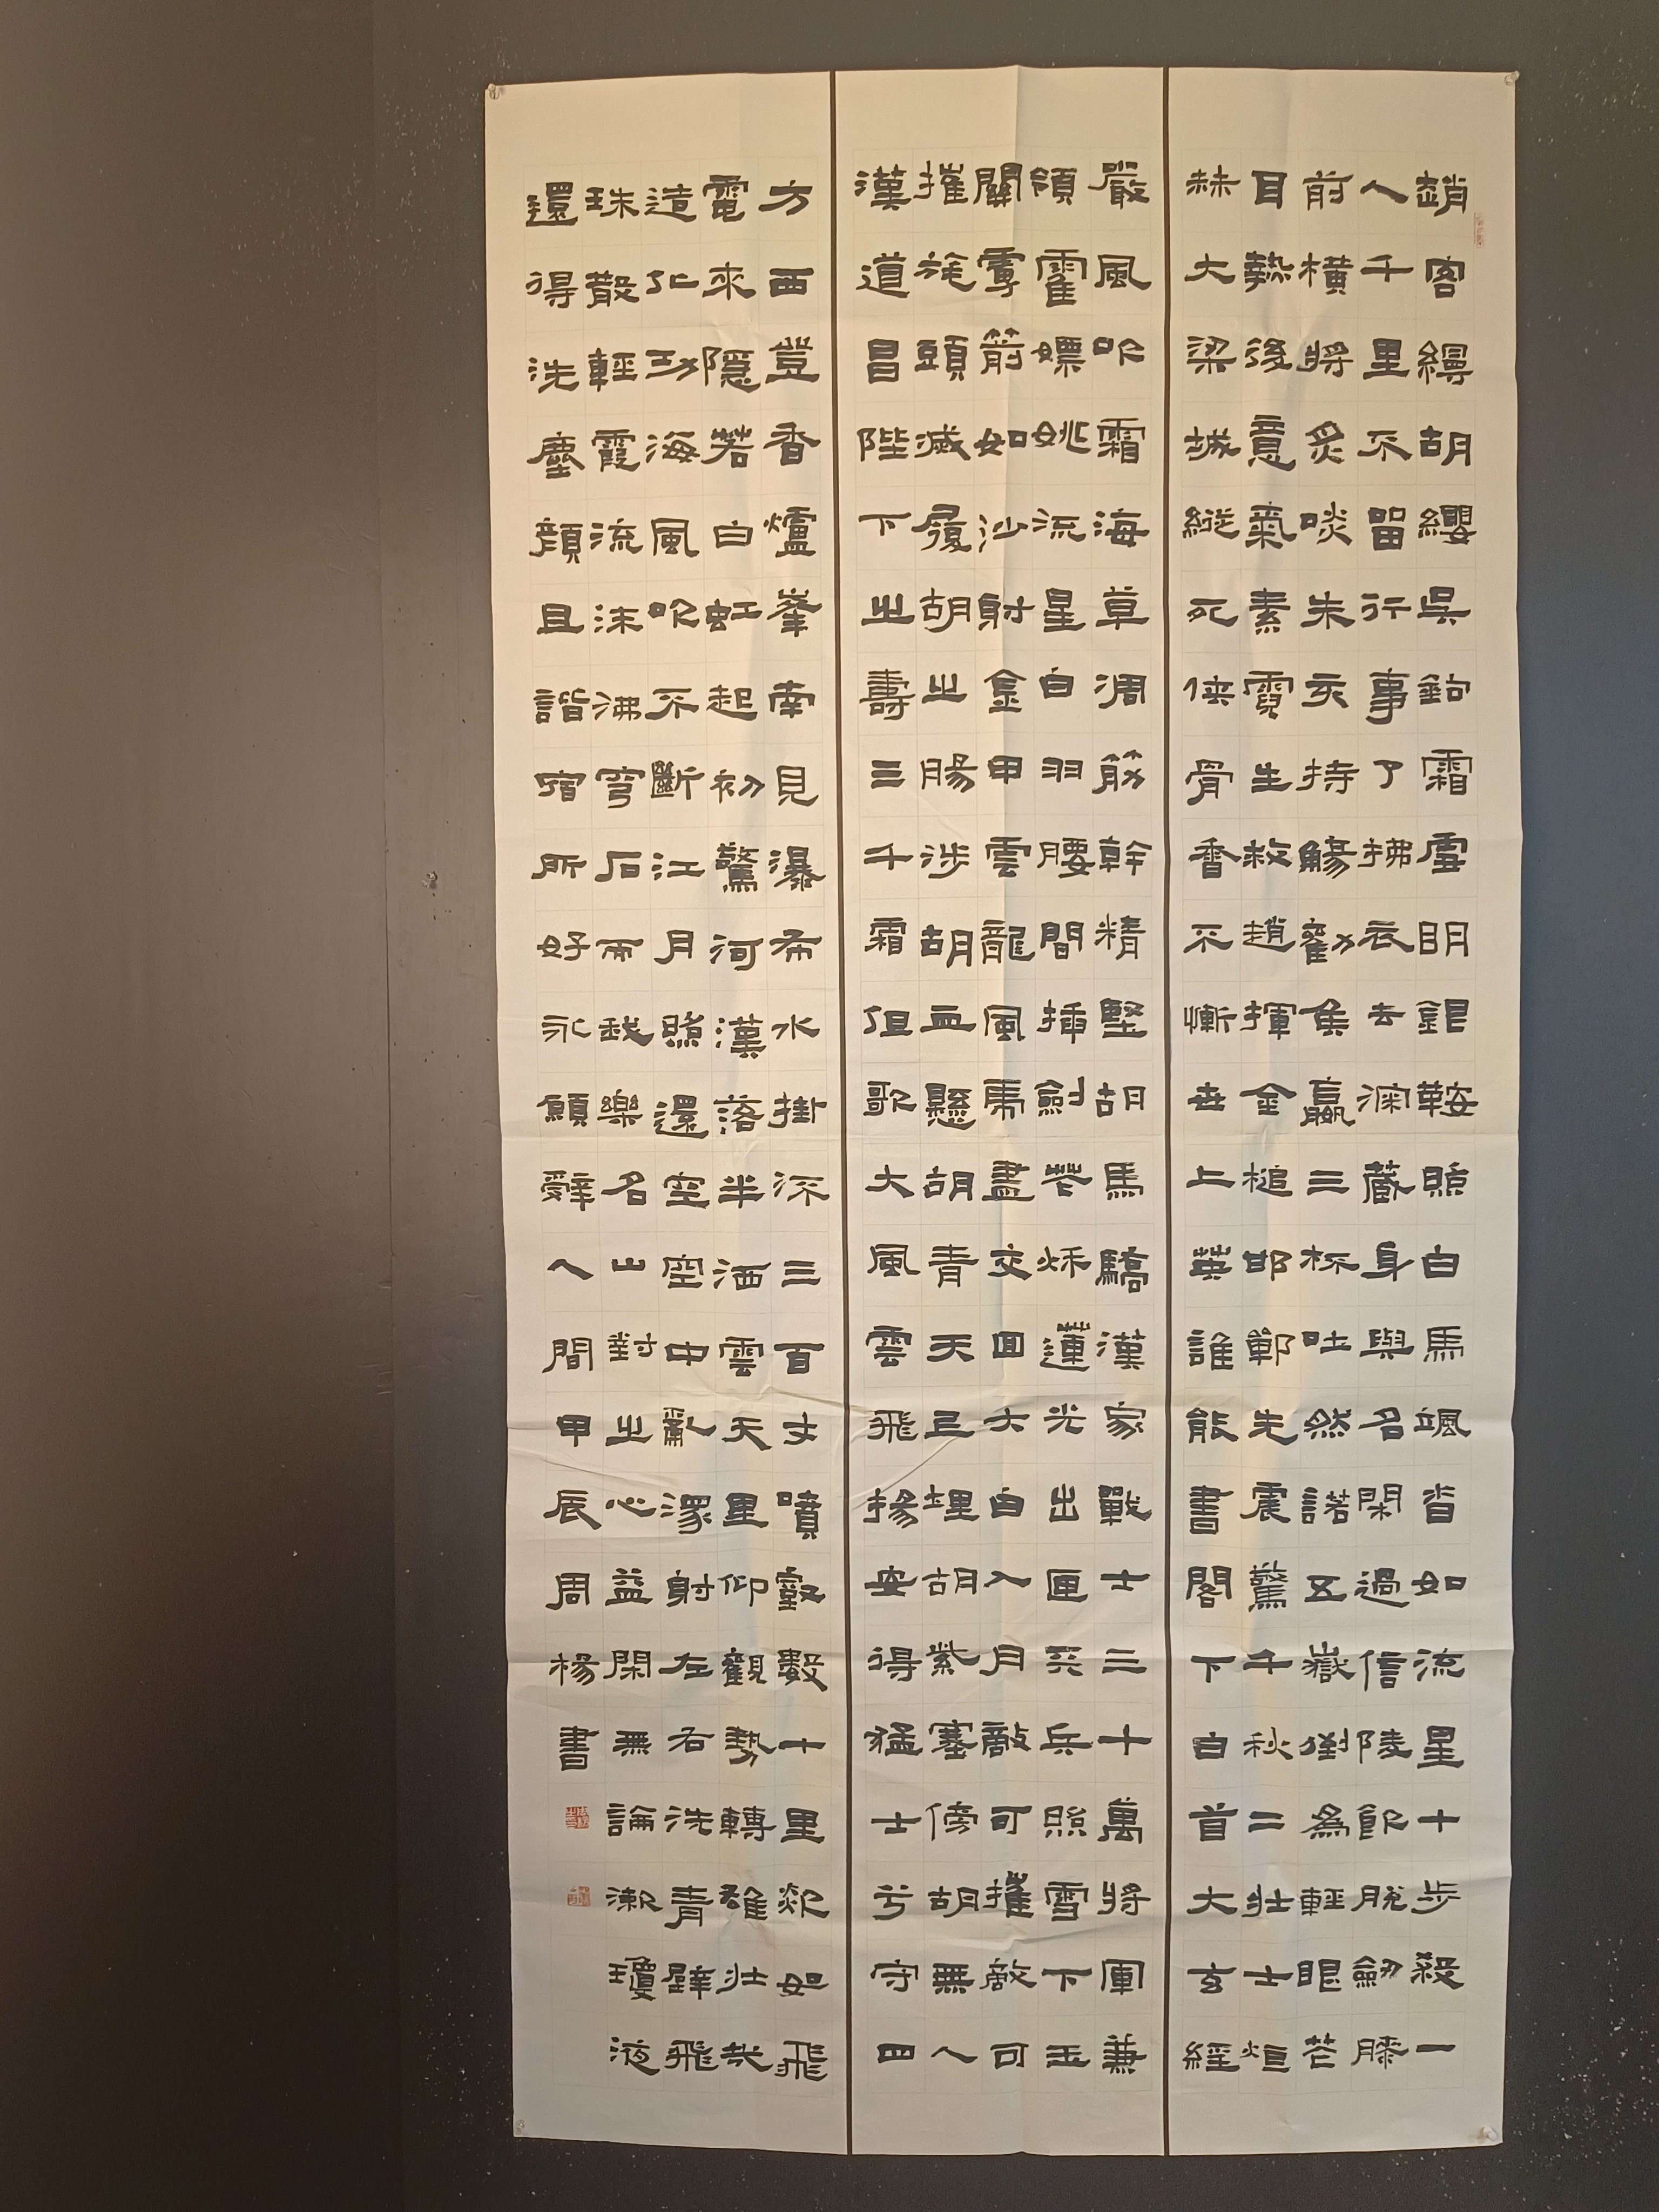 趙客縵胡纓吳鉤霜雪明銀鞍照白馬颯沓如流星十步殺一
人千里不留行事了拂衣去深藏身與名閑過信陵飲脫劍膝
前橫將炙啖朱亥持觴勸侯嬴三杯吐然諾五嶽倒為輕眼花
目熱後意氣素霓生救趙揮金槌邯鄲先震驚千秋二壯士烜
赫大梁城縱死俠骨香不慚世上英誰能書閣下白首大玄經
嚴風吹霜海草凋筋幹精堅胡馬驕漢家戰士三十萬將軍兼
領霍嫖姚流星白羽腰間插劍花秋蓮光出匣天兵照雪下玉
關虜箭如沙射金甲雲龍風虎盡交回大白入月敵可摧敵可
摧旄頭滅履胡之腸涉胡血懸胡青天上埋胡紫塞傍胡無人
漢道昌陛下之壽三千霜但歌大風雲飛揚安得猛士兮守四
方西登香爐峯南見瀑布水掛流三百丈噴壑數十里欻如飛
電來隱若白虹起初驚河漢落半洒雲天里仰觀勢轉雄壯哉
造化功海風吹不斷江月照還空空中亂潈射左右洗青壁飛
珠散輕霞流沫沸穹石而我樂名山對之心益閑無論漱瓊液
還得洗塵顏且諧宿所好永願辭人間甲辰周楊書